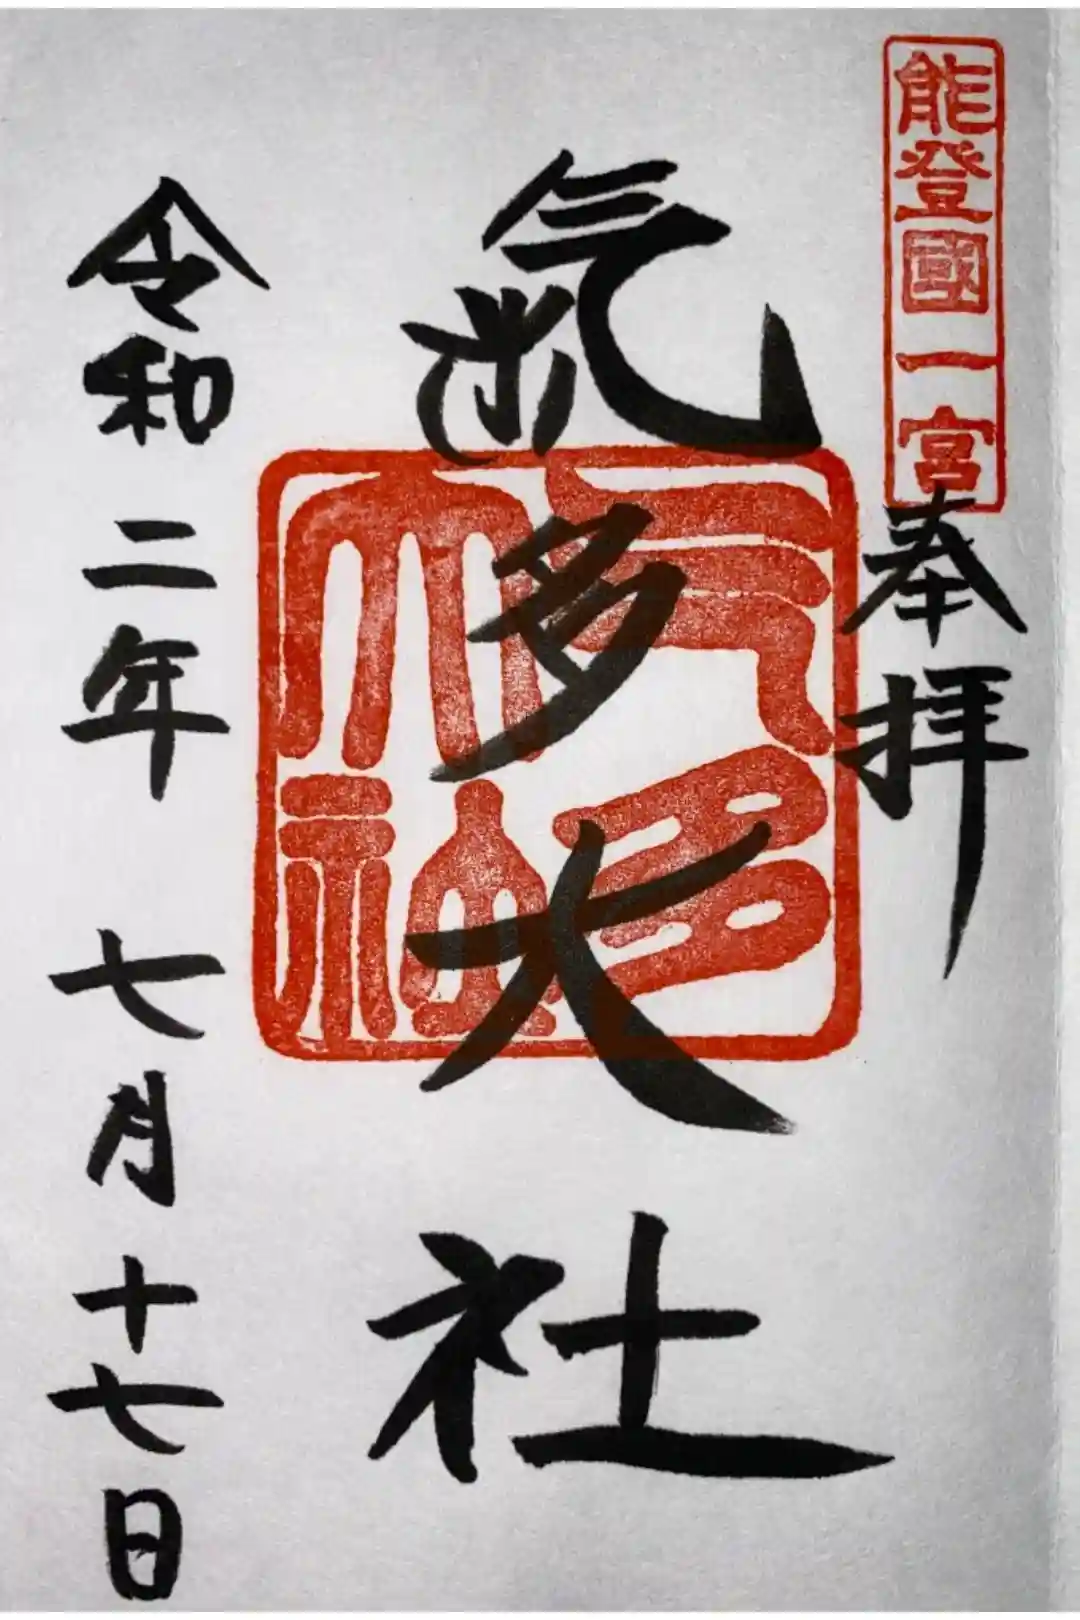 能登國一宮
奉拝
氣多大社
気多
大社
令和二年 七月十七日